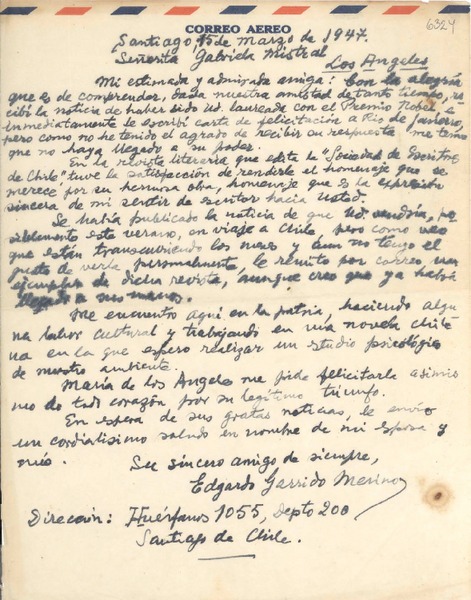 6324
CORREO AEREO
Santiago 15 de Marzo de 1947.
Señorita Gabriela Mistral
Los Angeles
Mi estimada y admirada amiga: Con la alegría
que es de comprender, dada nuestra amistad de tanto tiempo, re
cibí la noticia de haber sido Ud. laureada con el Premio Nobel e
inmediatamente le escribí carta de felicitación a Rio de Janeiro,
pero como no he tenido el agrado de recibir su respuesta me temo
que no haya llegado a su poder.
En la revista literaria que edita la "Sociedad de Escritores
de Chile" tuve la satisfacción de rendirle el homenaje que se
merece por su hermosa obra, homenaje que es la expresión
sincera de mi sentir de escritor hacia Usted.
Se había publicado la noticia de que Ud. vendría, po
siblemente este verano, en viaje a Chile, pero como veo
que están transcurriendo los meses y aun no tengo el
gusto de verla personalmente, le remito por correo un
ejemplar de dicha revista, aunque creo que ya habrá
llegado a sus manos.
Me encuentro aquí en la patria, haciendo algu
na labor cultural y trabajando en una novela chile
na en la que espero realizar un estudio psicológico
de nuestro ambiente.
María de los Angeles me pide felicitarla asimis
mo de todo corazón por su legítimo triunfo.
En espera de sus gratas noticias, le envío
un cordialísimo saludo en nombre de mi esposa y
mío.
Su sincero amigo de siempre,
Edgardo Garrido Merino
Dirección: Huérfanos 1055, Depto 200
Santiago de Chile.